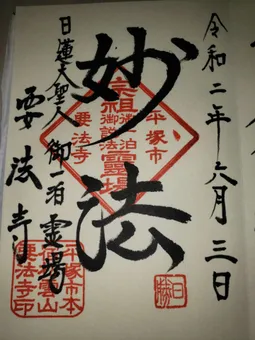 令和二年六月三日
妙法
平塚市
宗祖御一泊御説法靈場
要法寺
日蓮大聖人御一泊霊場
要法寺
平塚市本
雲山
要法寺印